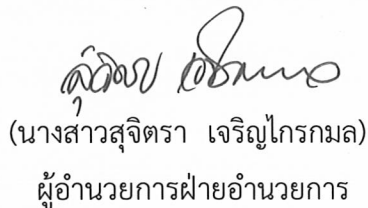 (นางสาวสุจิตรา เจริญไกรกมล)
ผู้อำนวยการฝ่ายอำนวยการ